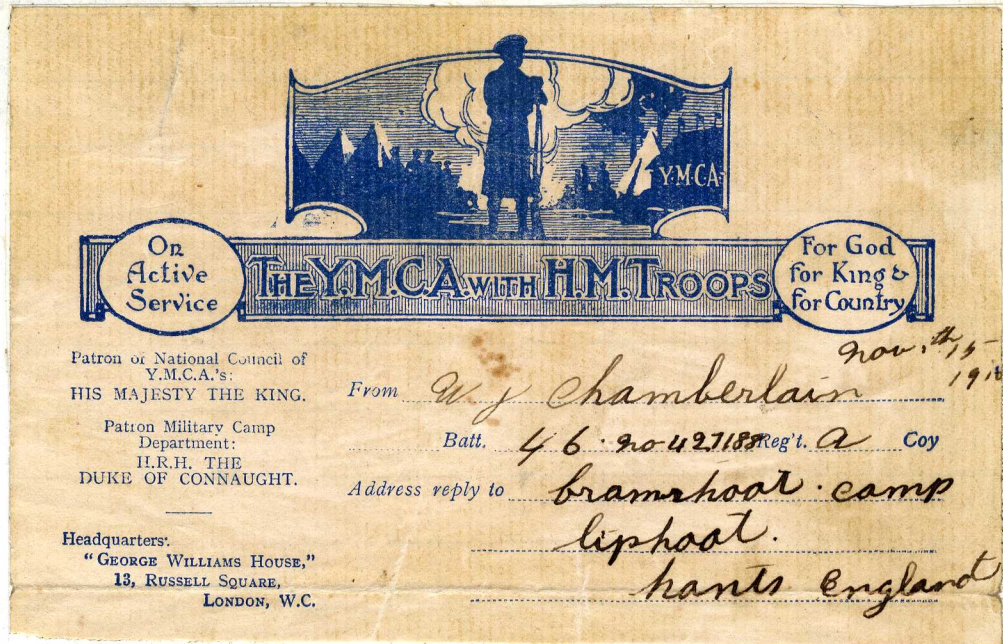 Y.M.C.A.
On
Active
Service
THE Y.M.C.A. WITH H.M. TROOPS
For God
for King &
for Country
Patron of National Council of
Y.M.C.A.'s:
HIS MAJESTY THE KING.
Patron Military Camp
Department:
H.R.H. THE
DUKE OF CONNAUGHT.
Headquarters:
"GEORGE WILLIAMS HOUSE,"
13, RUSSELL SQUARE,
LONDON, W.C.
nov. th 15
From W J Chamberlain
Batt. 46. no 427188 Reg't. A Coy
Address reply to bramshoot. camp
liphoot.
hants England